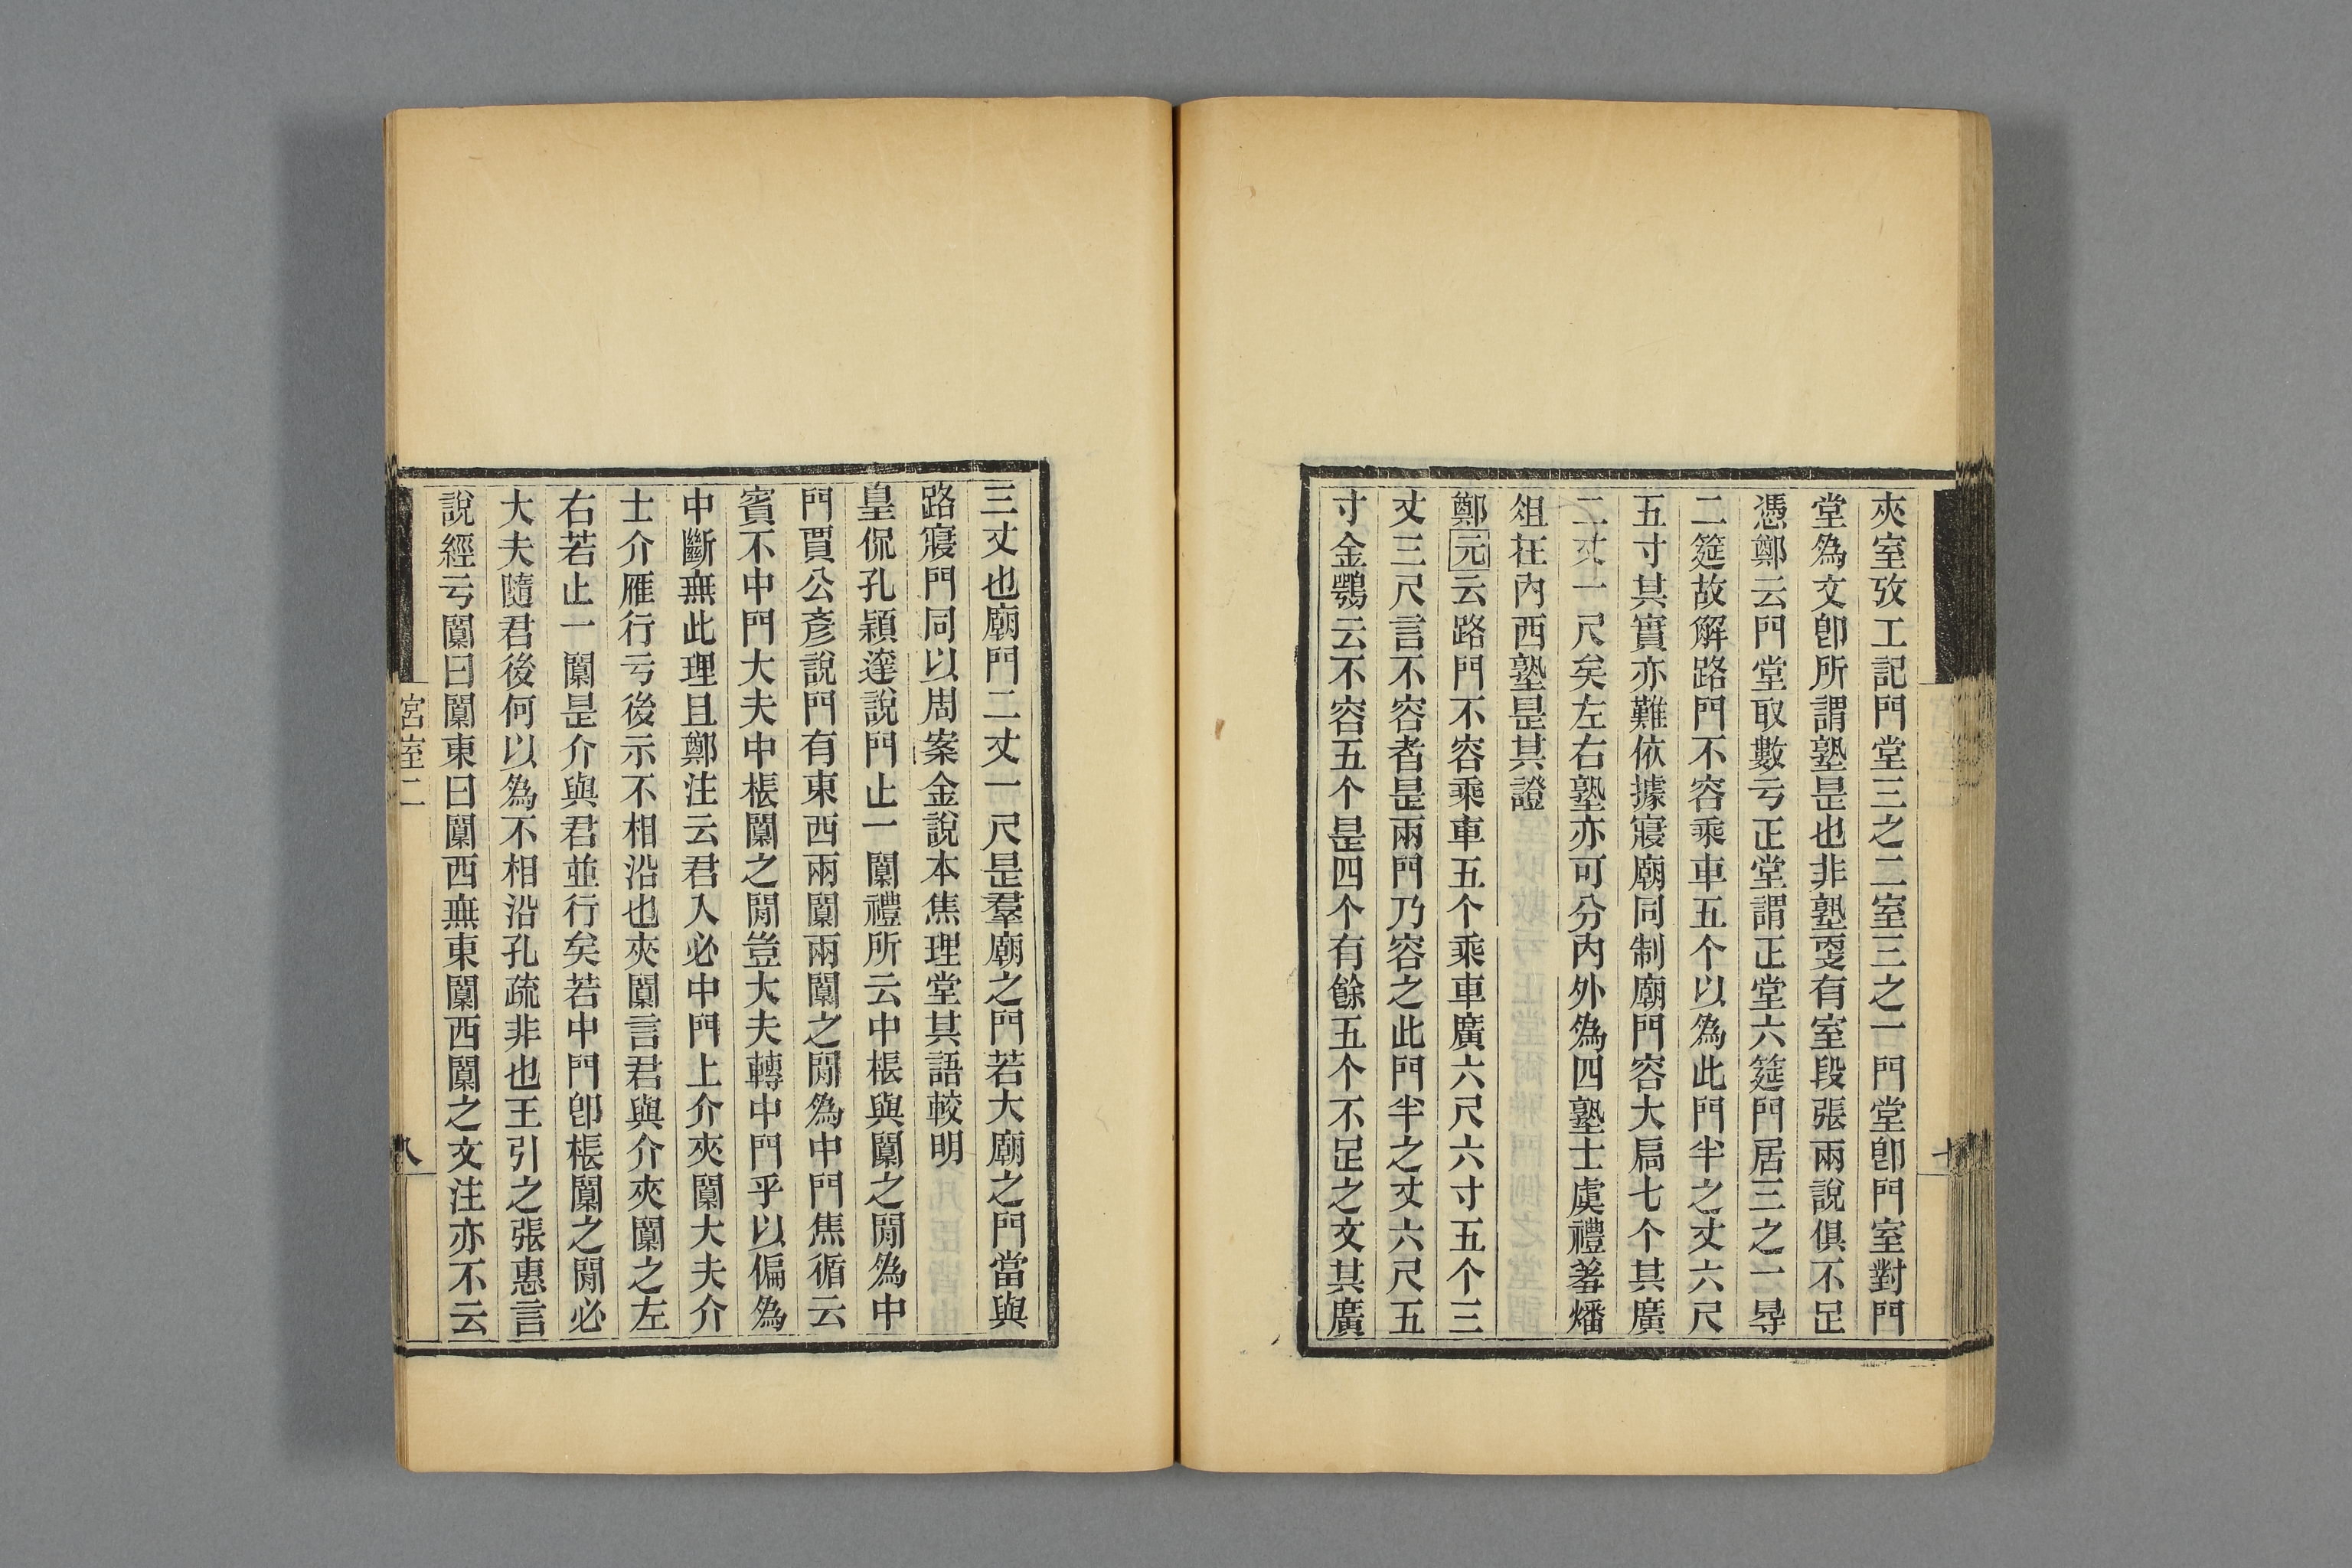 夾室攷工記門堂三之二室三之一門堂卽門室對門
堂爲文卽所謂塾是也非塾㪅有室段張兩說俱不足
憑鄭云門堂取數亏正堂謂正堂六筵門居三之一㝵
二筵故解路門不容乘車五个以爲此門半之丈六尺
五寸其實亦難依據寢廟同制廟門容大扃七个其廣
二丈一尺矣左右塾亦可分內外爲四塾士虞禮羞燔
俎在內西塾是其證
鄭元云路門不容乘車五个乘車廣六尺六寸五个三
丈三尺言不容者是兩門乃容之此門半之丈六尺五
寸金鶚云不容五个是四个有餘五个不足之文其廣
三丈也廟門二丈一尺是羣廟之門若大廟之門當與
路寢門同以周案金說本焦理堂其語較明
皇侃孔穎達說門止一闑禮所云中棖與闑之閒爲中
門賈公彥說門有東西兩闑兩闑之閒爲中門焦循云
賓不中門大夫中棖闑之閒豈大夫轉中門乎以偏爲
中斷無此理且鄭注云君入必中門上介夾闑大夫介
士介雁行亏後示不相沿也夾闑言君與介夾闑之左
右若止一闑是介與君並行矣若中門卽棖闑之閒必
大夫隨君後何以爲不相沿孔疏非也王引之張惠言
說經亏闑曰闑東曰闑西無東闑西闑之文注亦不云
宮室二
八